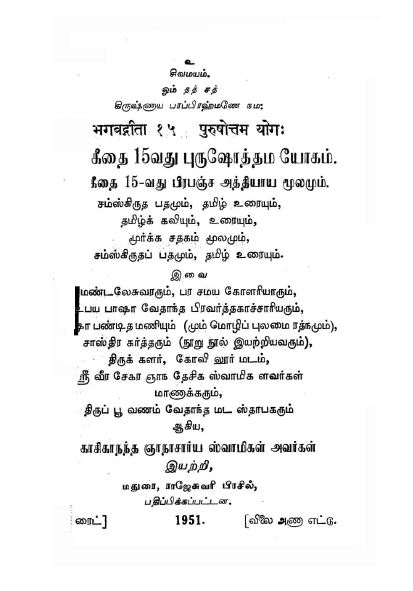 உ
சிவமயம்.
ஓம் தத் சத்
கிருஷ்ணாய பரப்பிரஹ்மணே நம:
भगवद्गीता १५ पुरुषोत्तम योगः
கீதை 15வது புருஷோத்தம யோகம்.
கீதை 15-வது பிரபஞ்ச அத்தியாய மூலமும்.
சம்ஸ்கிருத பதமும், தமிழ் உரையும்,
தமிழ்க் கவியும், உரையும்,
மூர்க்க சதகம் மூலமும்,
சம்ஸ்கிருதப் பதமும், தமிழ் உரையும்.
இவை
மண்டலேசுவரரும், பர சமய கோளரியாரும்,
உபய பாஷா வேதாந்த பிரவர்த்தகாச்சாரியரும்,
கா பண்டிதமணியும் (மும் மொழிப் புலமை ரத்நமும்),
சாஸ்திர கர்த்தரும் (நூறு நூல் இயற்றியவரும்),
திருக் களர், கோவிலூர் மடம்,
ஸ்ரீ வீர சேகர ஞாந தேசிக ஸ்வாமிக ளவர்கள்
மாணாக்கரும்,
திருப் பூ வணம் வேதாந்த மட ஸ்தாபகரும்
ஆகிய,
காசிகாநந்த ஞாநாசார்ய ஸ்வாமிகள் அவர்கள்
இயற்றி,
மதுரை, ராஜேசுவரி பிரசில்,
பதிப்பிக்கப்பட்டன.
ரைட்] 1951. [விலை அணா எட்டு.